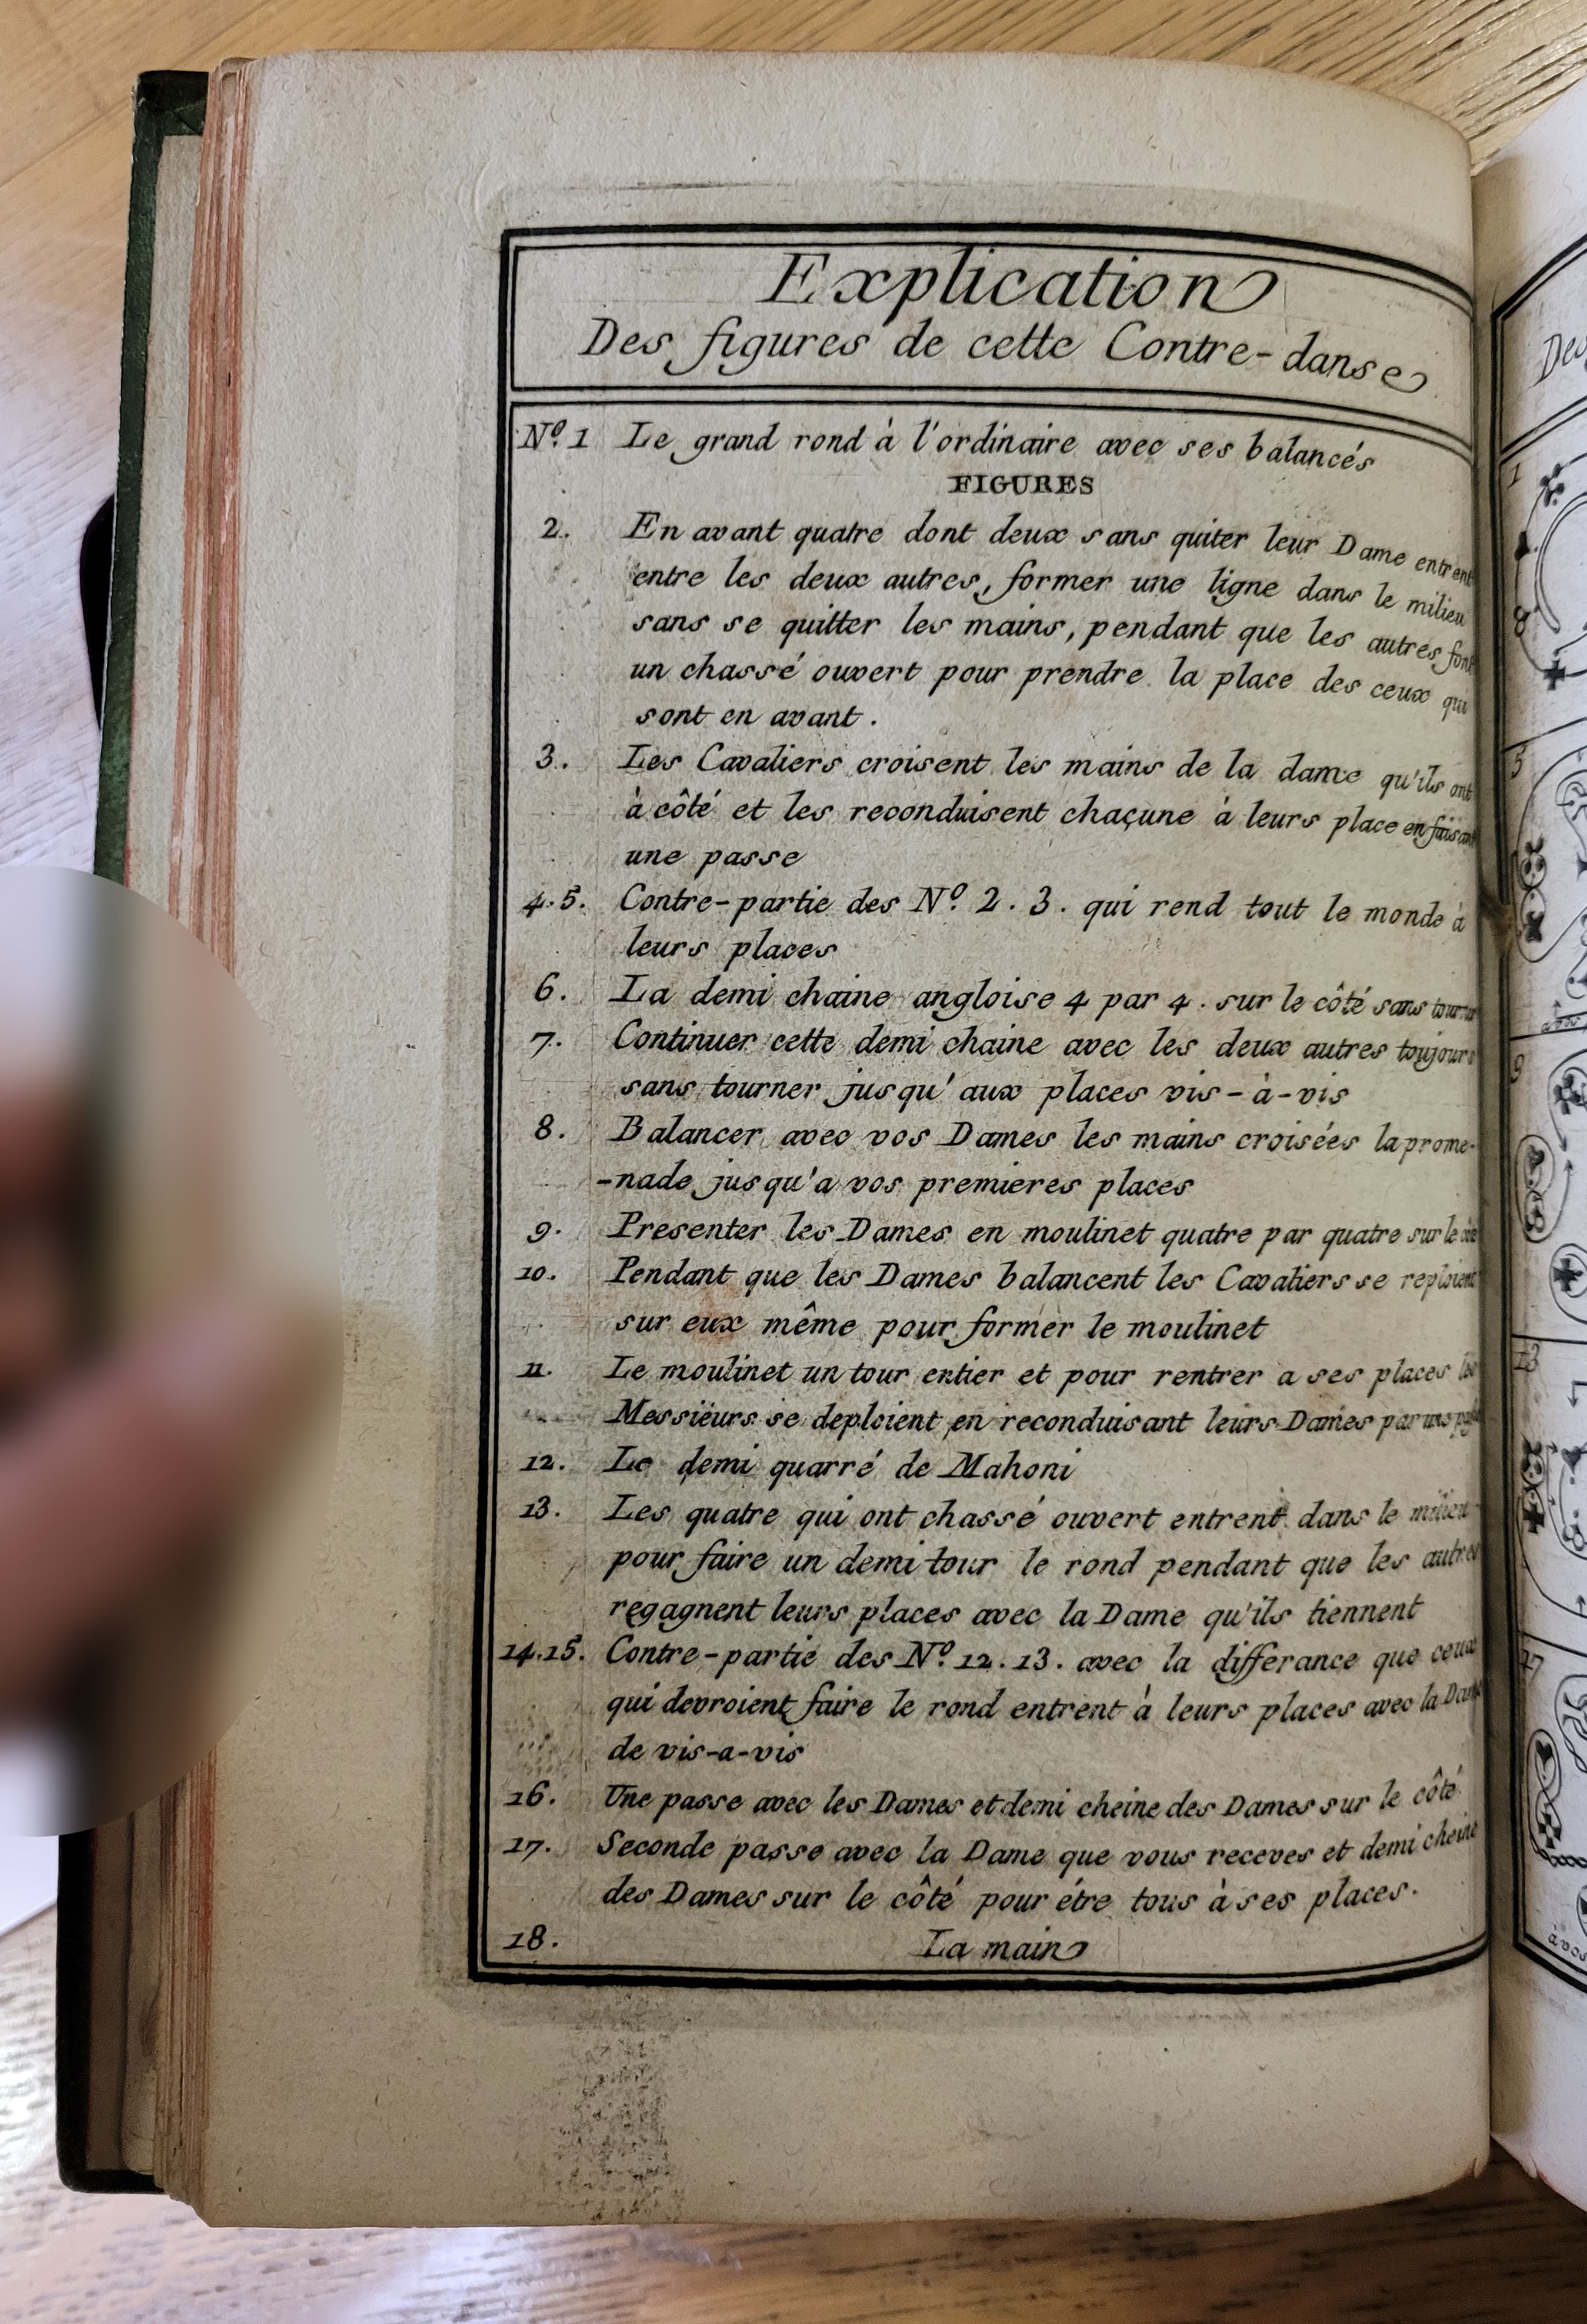 Explication
Des figures de cette Contre-danse
Nº. 1 Le grand rond à l'ordinaire avec ses balancés
FIGURES
2. En avant quatre dont deux sans quiter leur Dame entrent
entre les deux autres, former une ligne dans le milieu
sans se quitter les mains, pendant que les autres font
un chassé ouvert pour prendre la place des ceux qui
sont en avant.
3. Les Cavaliers croisent les mains de la dame qu'ils ont
à côté et les reconduisent chaçune à leurs place en faisant
une passe
4.5. Contre-partie des Nº. 2. 3. qui rend tout le monde à
leurs places
6. La demi chaine angloise 4 par 4. sur le côté sans
7. Continuer cette demi chaine avec les deux autres toujours
sans tourner jusqu'aux places vis-à-vis
8. Balancer avec vos Dames les mains croisées la prome-
-nade jusqu'a vos premieres places
9. Presenter les Dames en moulinet quatre par quatre sur le
10. Pendant que les Dames balancent les Cavaliers se reploient
sur eux même pour former le moulinet
11. Le moulinet un tour entier et pour rentrer a ses places les
Messiëurs se deploient en reconduisant leurs Dames par
12. Le demi quarré de Mahoni
13. Les quatre qui ont chassé ouvert entrent dans le milieu
pour faire un demi tour le rond pendant que les autres
regagnent leurs places avec la Dame qu'ils tiennent
14.15. Contre-partie des Nº. 12. 13. avec la differance que ceux
qui devroient faire le rond entrent à leurs places avec la Dame
de vis-a-vis
16. Une passe avec les Dames et demi cheine des Dames sur le côté
17. Seconde passe avec la Dame que vous receves et demi cheine
des Dames sur le côté pour étre tous à ses places.
18. La main